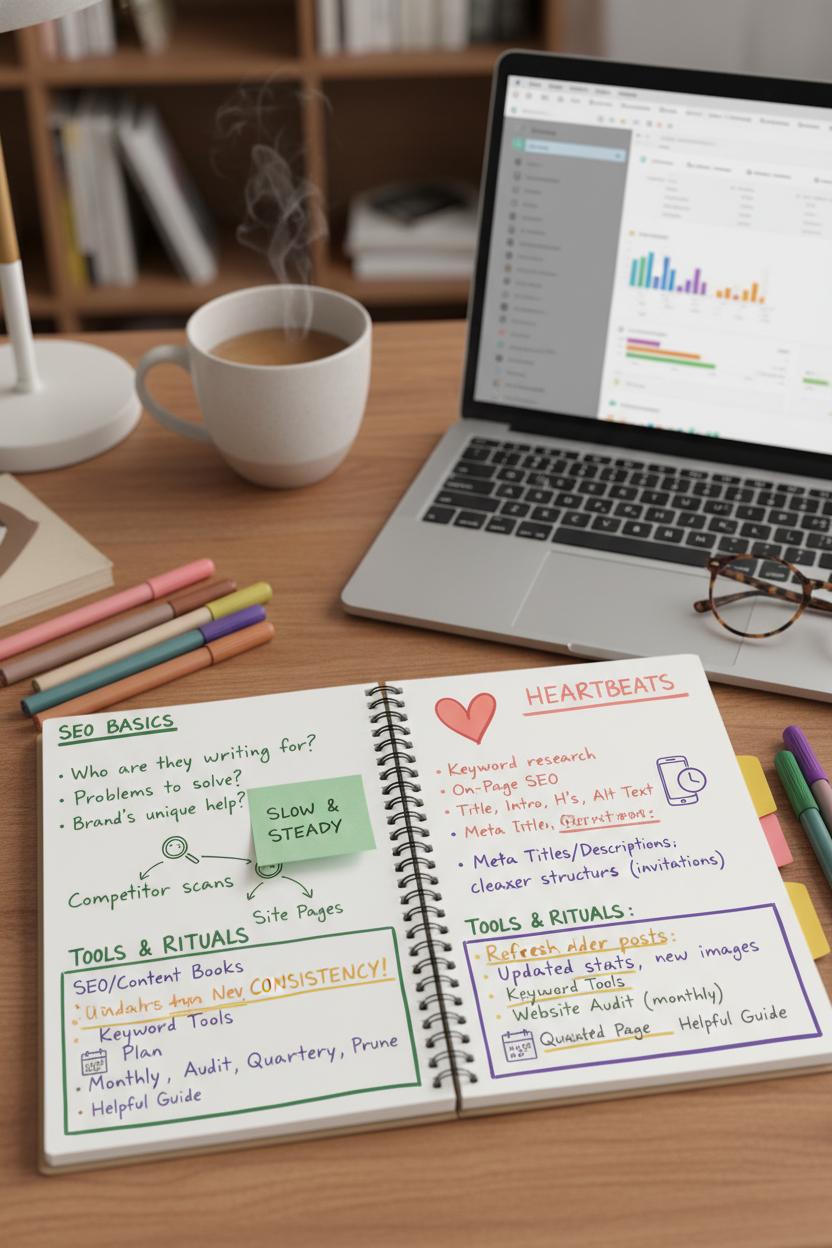 SEO BASICS
• Who are they writing for?
• Problems to solve?
• Brand's unique help?
SLOW &
STEADY
Competitor scans
Site Pages
TOOLS & RITUALS
SEO/Content Books
CONSISTENCY!
• Keyword Tools
Plan
• Monthly, Audit, Quartery, Prune
• Helpful Guide
HEARTBEATS
• Keyword research
• On-Page SEO
• Title, Intro, H's, Alt Text
• Meta Title,
• Meta Titles/Descriptions;
cleaxer structurs (invitations)
TOOLS & RITUALS:
• Refresh alder posts:
• Updated stats, new images
• Keyword Tools
• Website Audit (monthly)
Page Helpful Guide